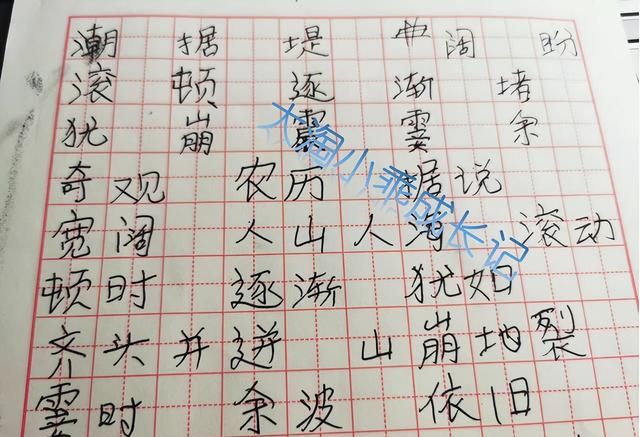 潮 据 堤 阔 盼
滚 顿 逐 渐 堵
犹 崩 震 霎 余
奇观 农历 据说
宽阔 人山人海 滚动
顿时 逐渐 犹如
齐头并迸 山崩地裂
霎时 余波 依旧
大淘小乖成长记